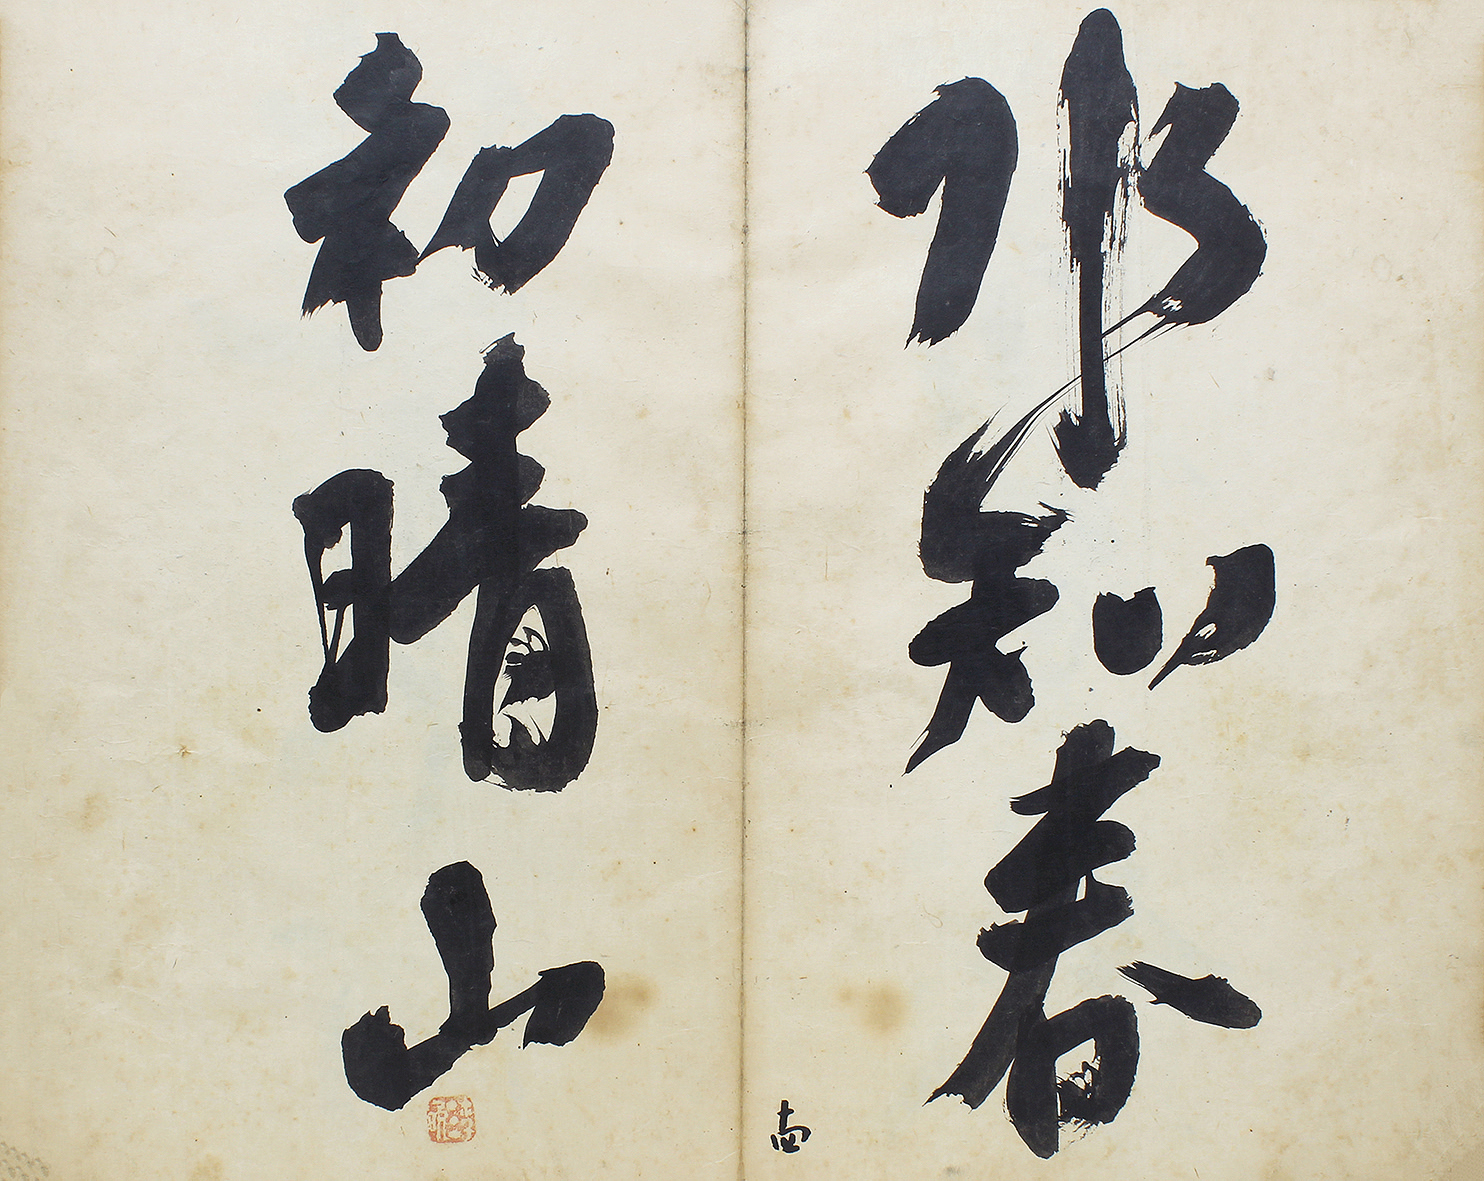 水知春
初晴山